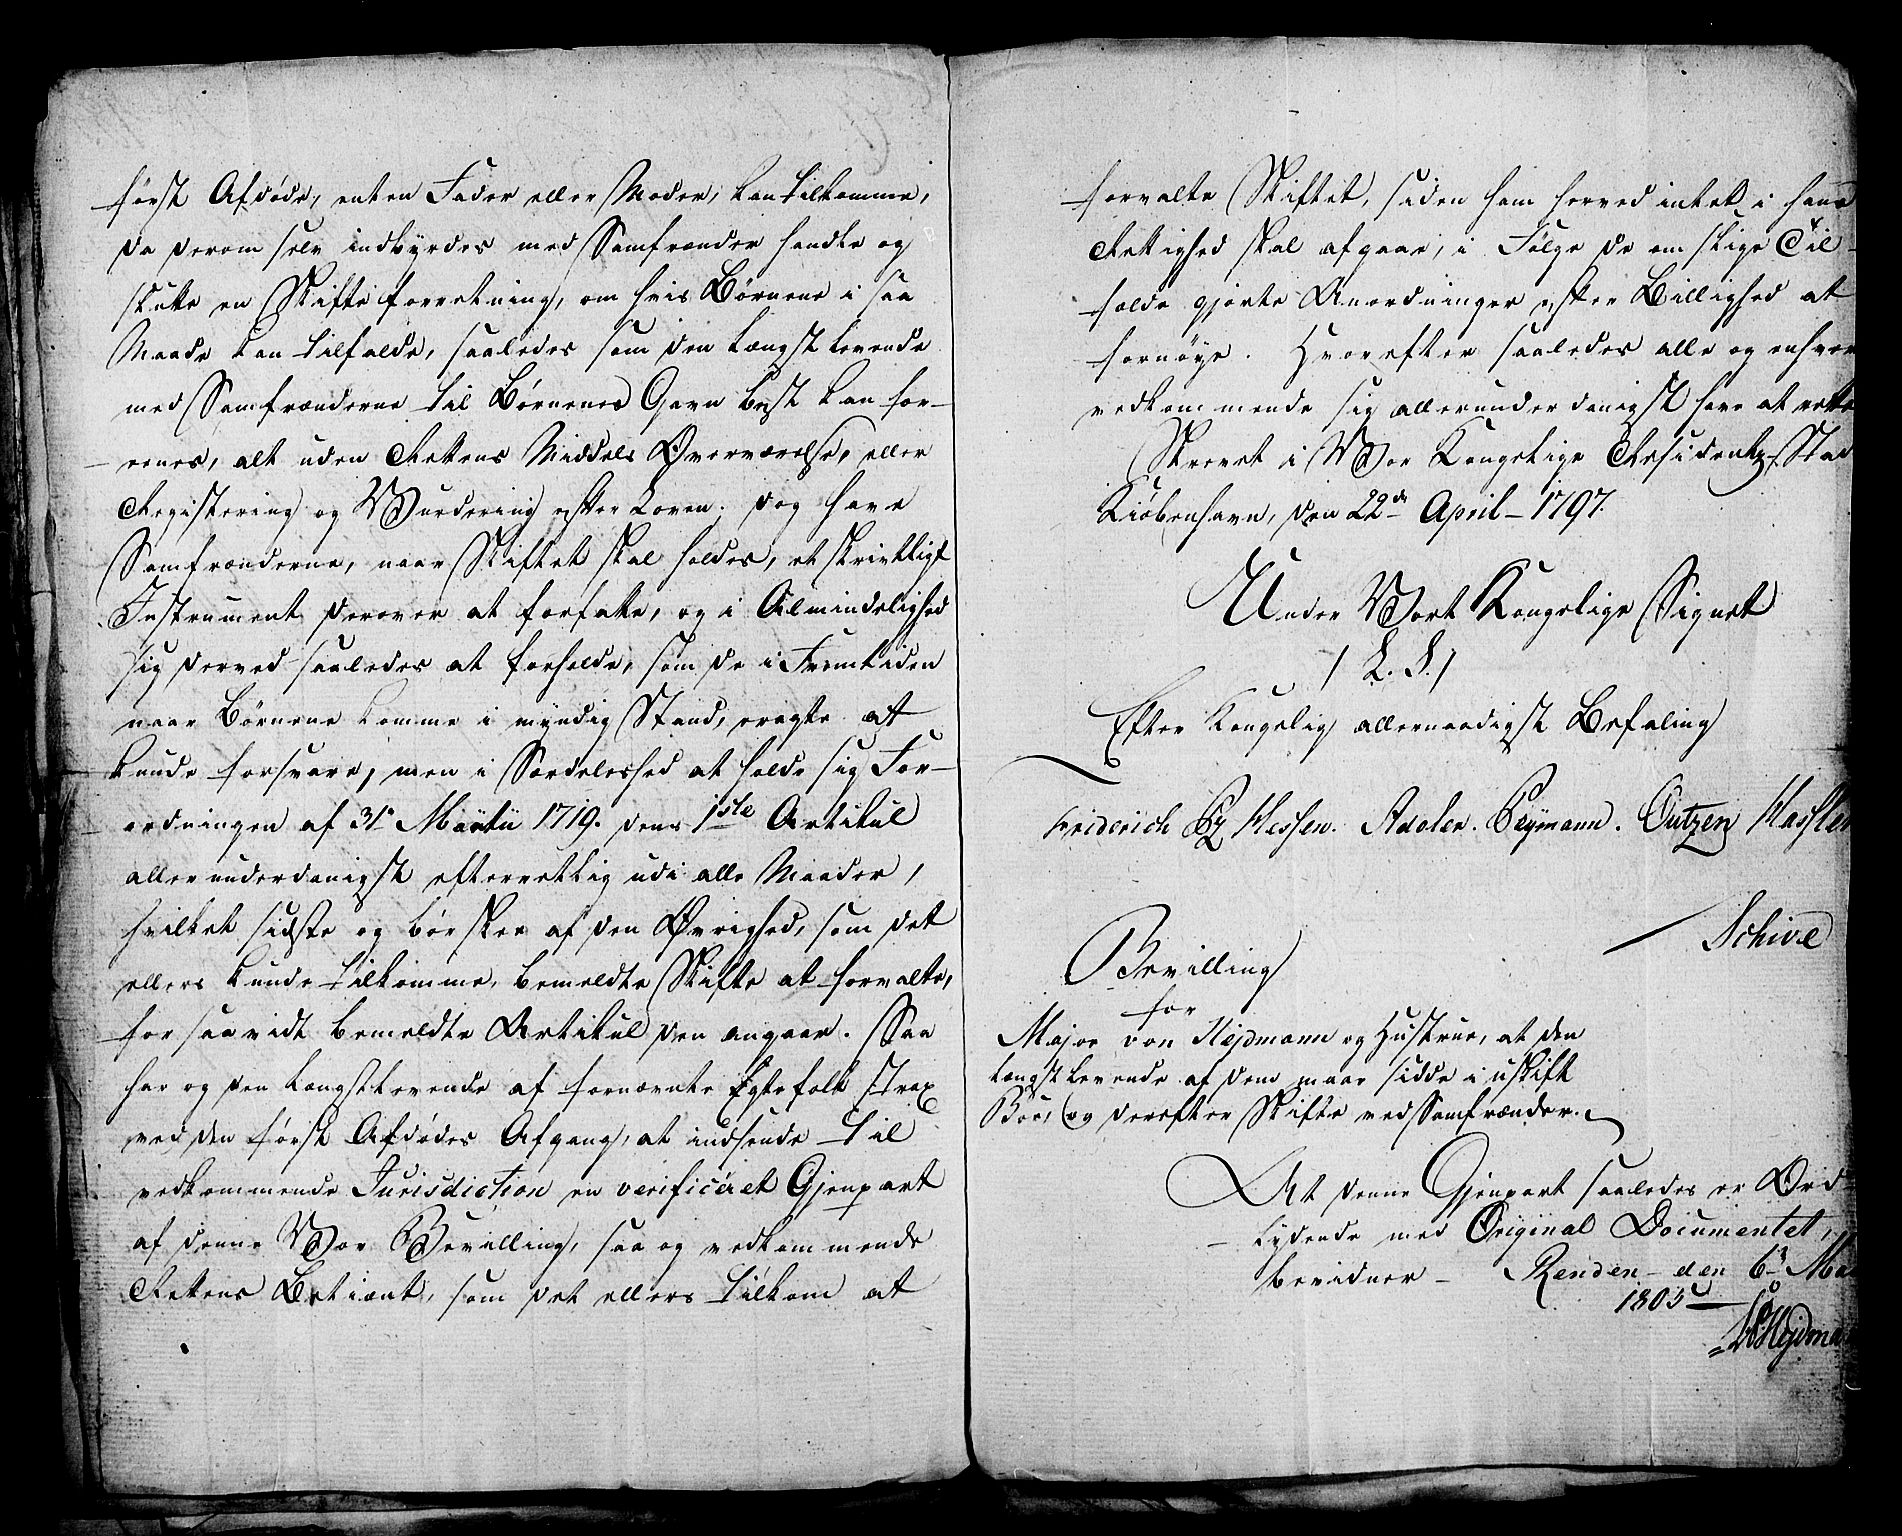 først Afdøde, enten Fader eller Moder, kan tilkomme,
da derom selv indbyrdes med Samfrænder handle og
slutte en Skifteforretning, om hvis Børnene i saa
Maade kan tilfalde, saaledes som den Længstlevende
med Samfrænderne til Børnenes Gavn best kan for-
eenes, alt uden Rettens Middels Overværelse, eller
Registering og Vurdering efter Loven. dog have
Samfrænderne, naar Skiftet skal holdes, et skriftligt
Instrument derover at forfatte, og i Almindelighed
sig derved saaledes at forholde, som de i Fremtiden
naar Børnene komme i myndig Stand, eragte at
kunde forsvare, men i Særdeleshed at holde sig For-
ordningen af 31e Martii 1719. dens 1ste Artikul
allerunderdanigst efterrettlig udi alle Maader,
hvilket sidste og bør skee af den Øvrighed, som det
ellers kunde tilkomme, bemeldte Skifte at forvalte,
for saavidt bemeldte Artikul den angaar. Saa
har og den Længstlevende af fornævnte Egtefolk strax
ved den først Afdødes Afgang, at indsende til
vedkommende Jurisdiction en verificeret Gjenpart
af denne Vor Bevilling, saa og vedkommende
Rettens Betient, som det ellers tilkom at
forvalte Skiftet, siden ham herved intet i hans
Rettighed skal afgaae, i Følge de om slige Til-
folde gjorte Anordninger efter Billighed at
fornøye. Hvorefter saaledes alle og enhver
vedkommende sig allerunderdanigst have at rette
Skrevet i Vor Kongelige Residentz-Stad
Kiøbenhavn, den 22de April 1797.
Under Vort Kongelige Signet
/ L. S. /
Efter Kongelig allernaadigst Befaling
Friderich Pz Hessen. Adeler. Peymann. Outzen
Schive
Bevilling
for
Major von Hejdmann og Hustrue, at den
længst levende af dem maae sidde i uskift
Boe, og derefter Skifte ved Samfrænder.
At denne Gjenpart saaledes er Ord-
lydende med Original Documentet,
bevidner Renden den 6
1805
Hejdma